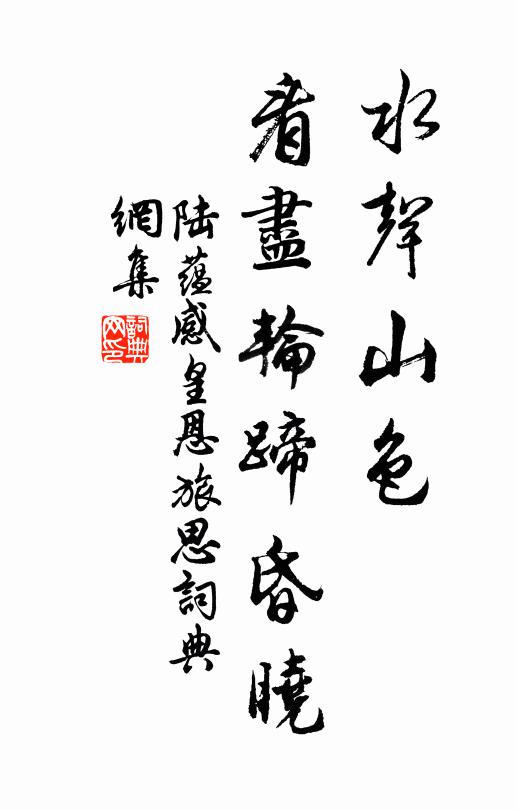 水聲山色
看盡輪蹄昏曉
陆蕴感皇恩旅思詞典
網集
詞典
网印